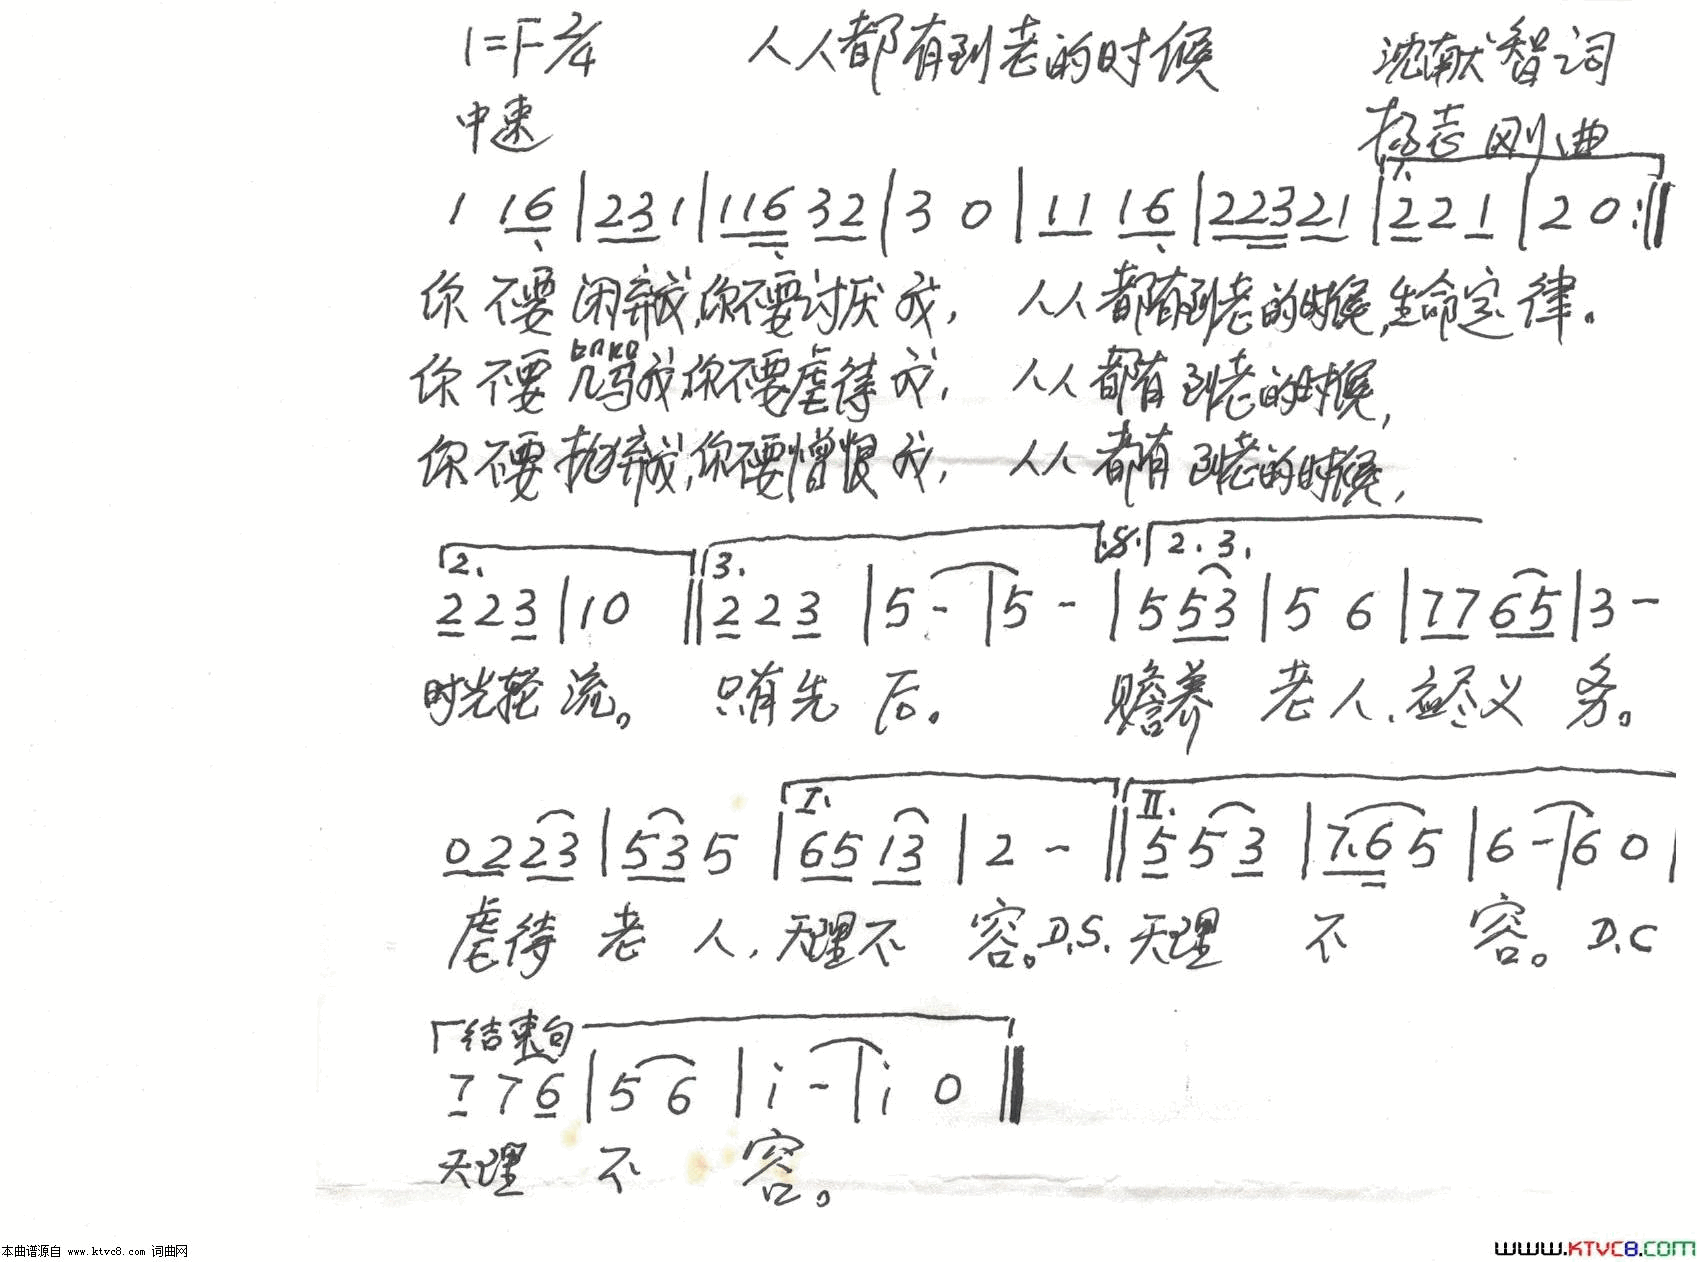 1=F 2/4 人人都有到老的时候 沈献智词
中速 杨志刚曲
1.
1 16 | 231 | 116 32 | 3 0 | 11 16 | 223 21 | 221 | 2 0 :‖
你不要闲弃我,你不要讨厌我, 人人都有到老的时候,生命定律。
你不要咒骂我,你不要虐待我, 人人都有到老的时候,
你不要抛弃我,你不要憎恨我, 人人都有到老的时候,
2. 3. .S. 2.3.
223 | 10 ‖ 223 | 5 - | 5 - | 553 | 5 6 | 77 65 | 3 -
时光轮流。 只有先后。 赡养老人,应尽义务。
I. II.
02 23 | 53 5 | 65 13 | 2 - ‖ 553 | 7.6 5 | 6 - | 6 0 |
虐待老人,天理不容。D.S. 天理不容。D.C
结束句
776 | 5 6 | i - | i 0 ‖
天理不容。
本曲谱源自 www.ktvc8.com 词曲网
www.KTVC8.COM